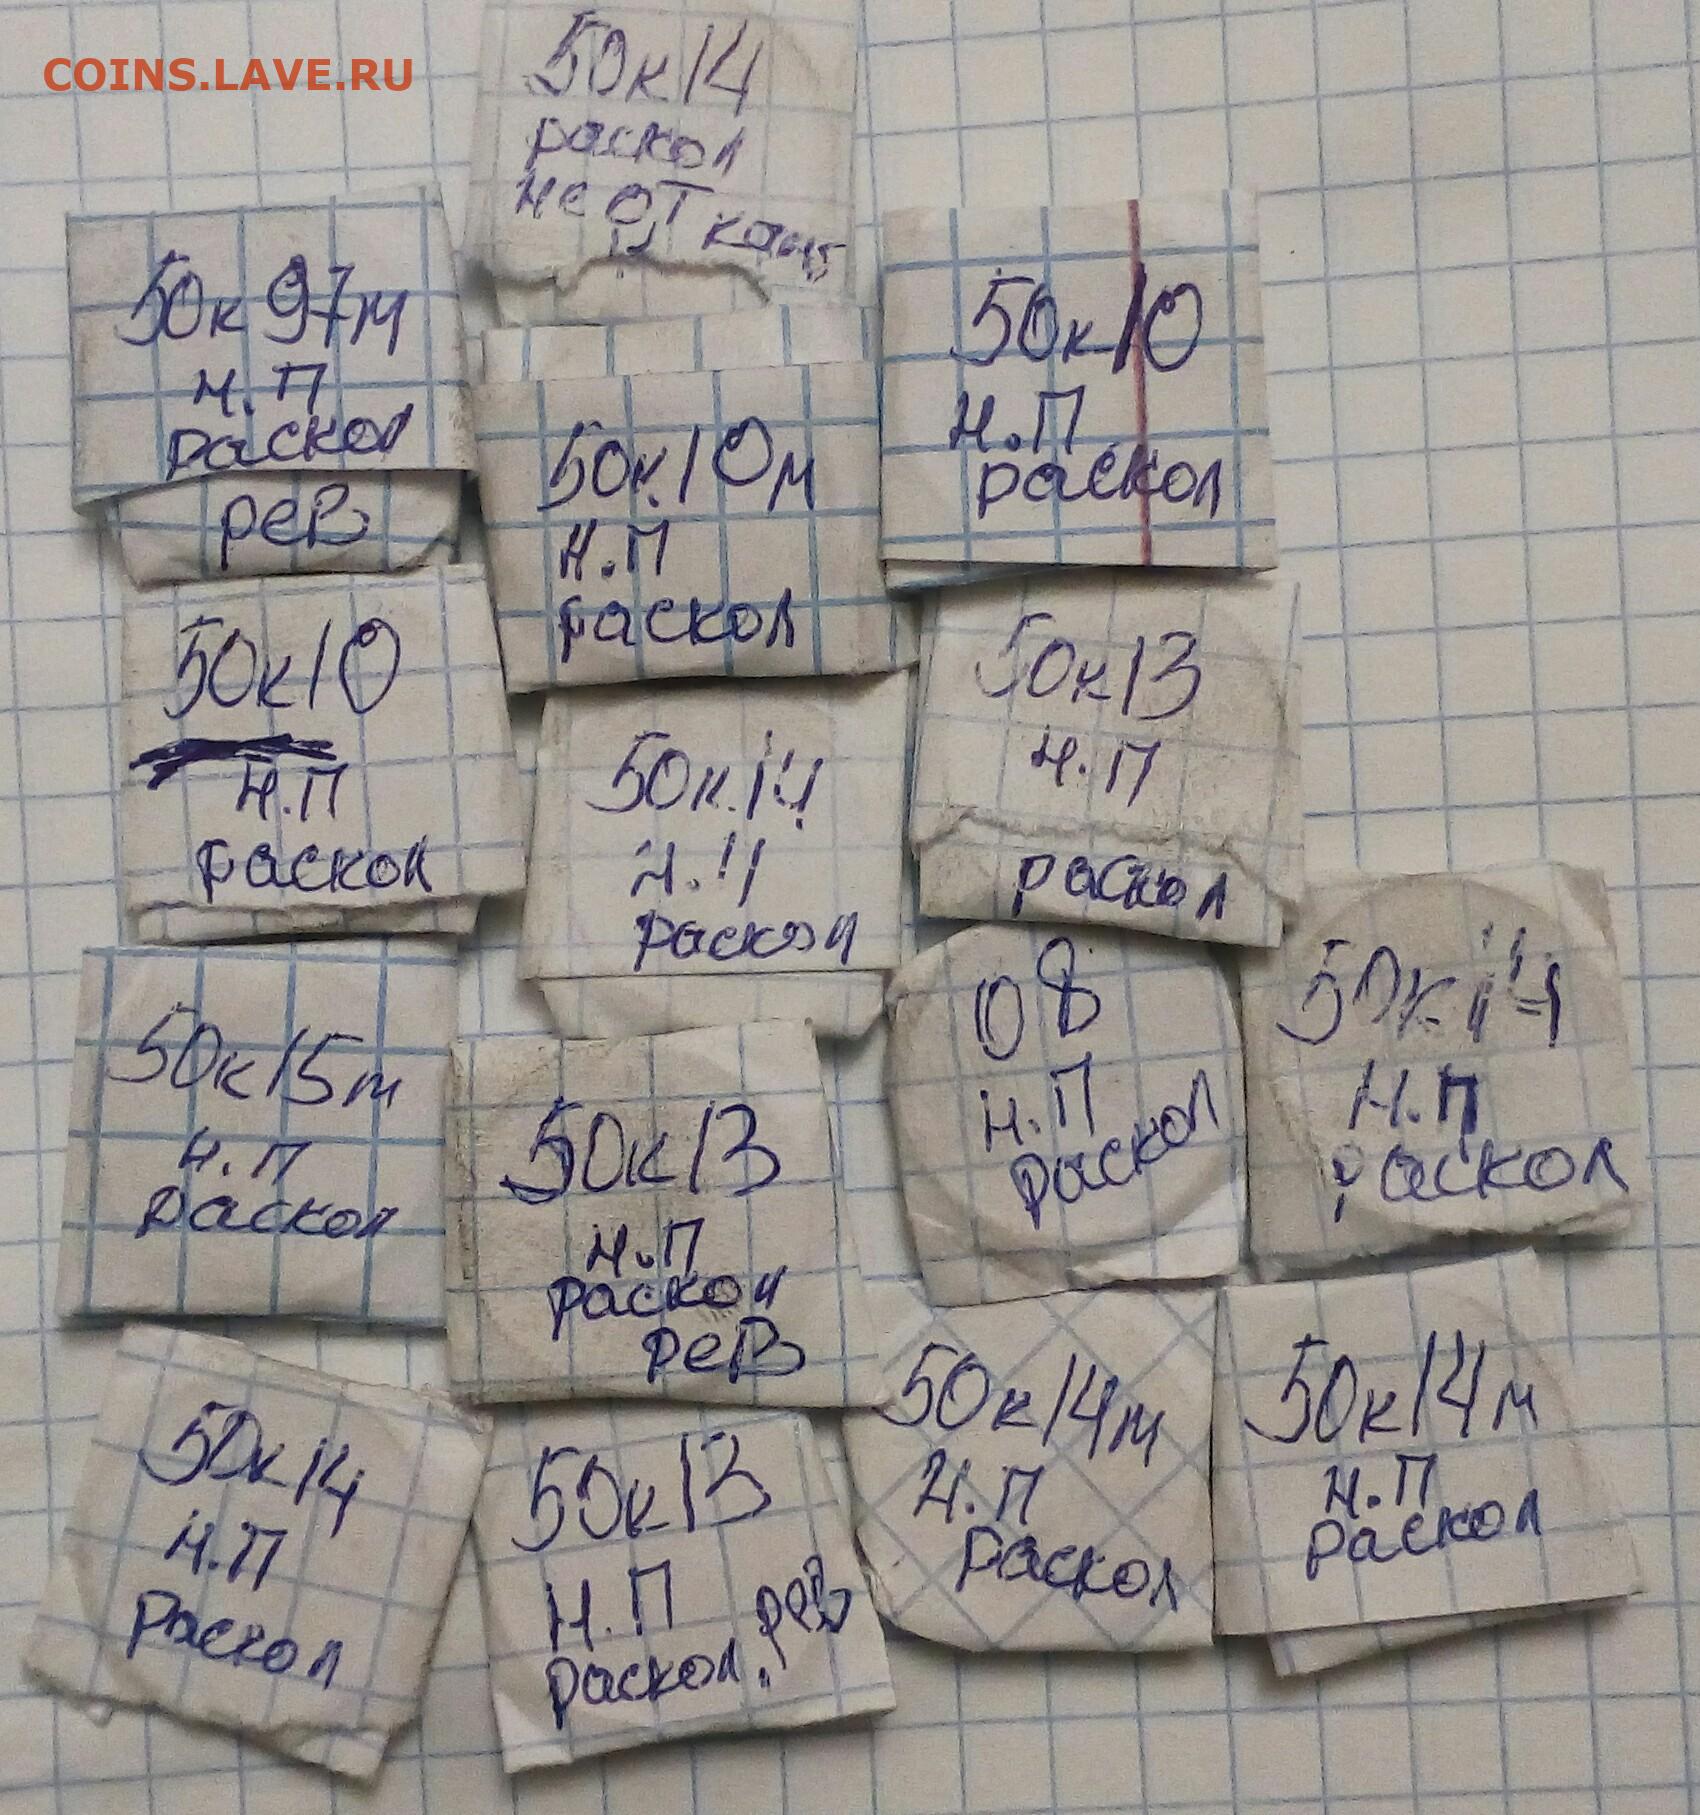 COINS.LAVE.RU
50к14
раскол
не от
50к97м
н.п
раскол
рев
50к10м
н.п
раскол
50к10
н.п
раскол
50к10
н.п
раскол
50к.14
н.п
раскол
50к13
н.п
раскол
50к15м
н.п
раскол
50к13
н.п
раскол
рев
08
н.п
раскол
50к14
н.п
раскол
50к14
н.п
раскол
50к13
н.п
раскол. рев
50к14м
н.п
раскол
50к14м
н.п
раскол